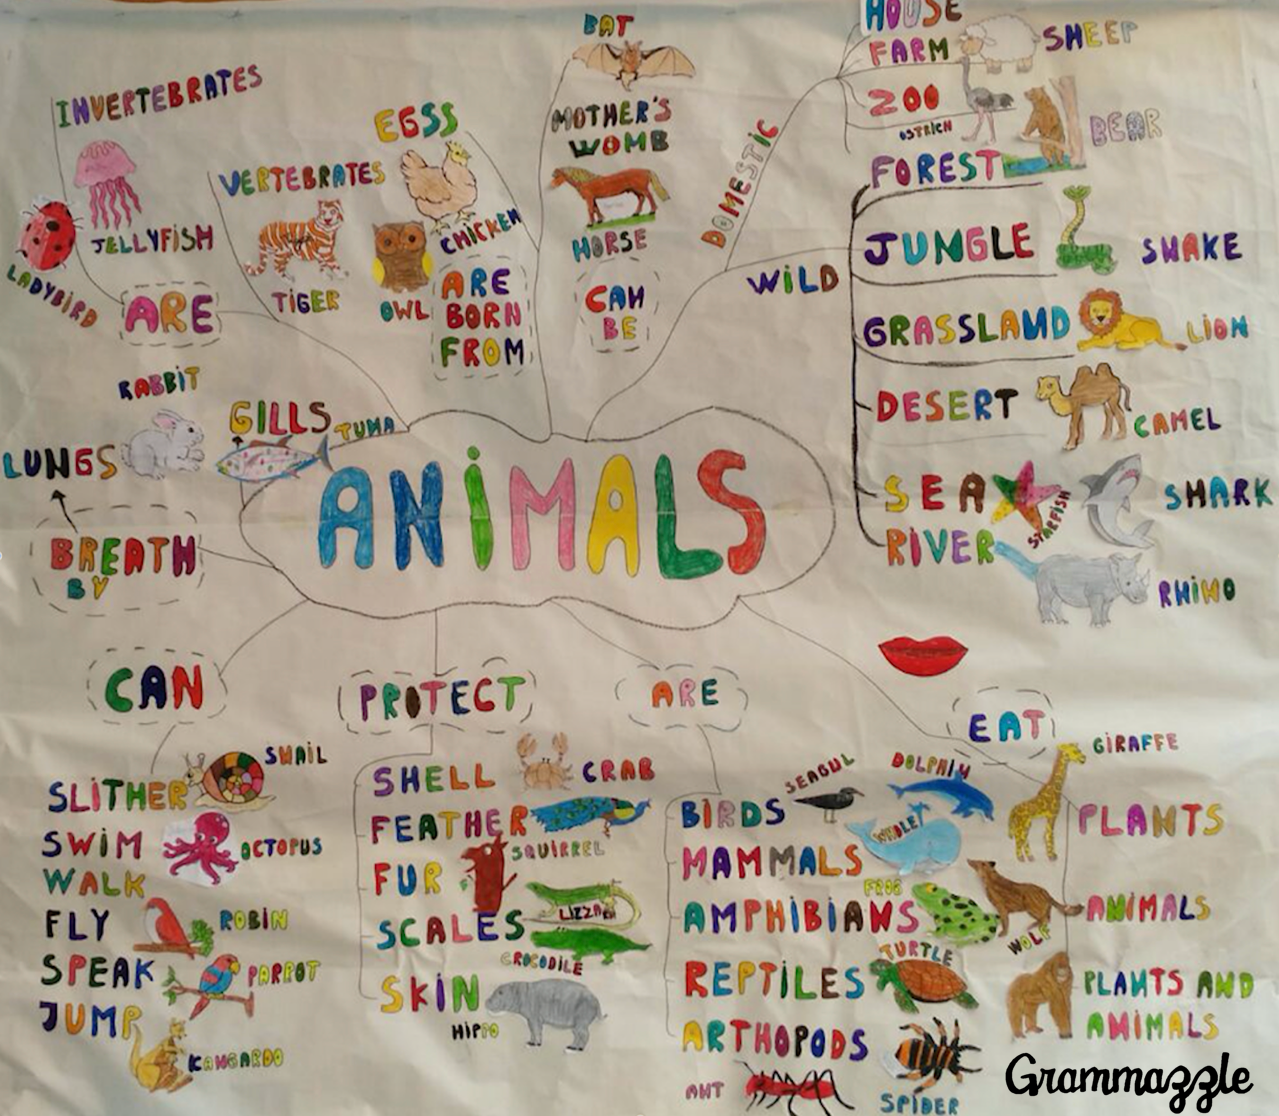 INVERTEBRATES
JELLYFISH
LADYBIRD
ARE
VERTEBRATES
TIGER
EGSS
CHICKEN
OWL
ARE
BORN
FROM
BAT
MOTHER'S
WOMB
HORSE
CAN
BE
DOMESTIC
HOUSE
FARM
SHEEP
ZOO
OSTRICH
BEAR
FOREST
WILD
JUNGLE
SNAKE
GRASSLAND
LION
DESERT
CAMEL
SEA
STARFISH
SHARK
RIVER
RHINO
RABBIT
LUNGS
GILLS
TUNA
BREATH
BY
ANIMALS
CAN
SLITHER
SNAIL
SWIM
OCTOPUS
WALK
FLY
ROBIN
SPEAK
PARROT
JUMP
KANGAROO
PROTECT
SHELL
CRAB
FEATHER
SQUIRREL
FUR
SCALES
LIZZARD
CROCODILE
SKIN
HIPPO
ARE
BIRDS
SEAGUL
DOLPHIN
MAMMALS
WHOLE
AMPHIBIANS
FROG
REPTILES
TURTLE
ARTHOPODS
ANT
SPIDER
EAT
GIRAFFE
PLANTS
WOLF
ANIMALS
PLANTS AND
ANIMALS
Grammazzle